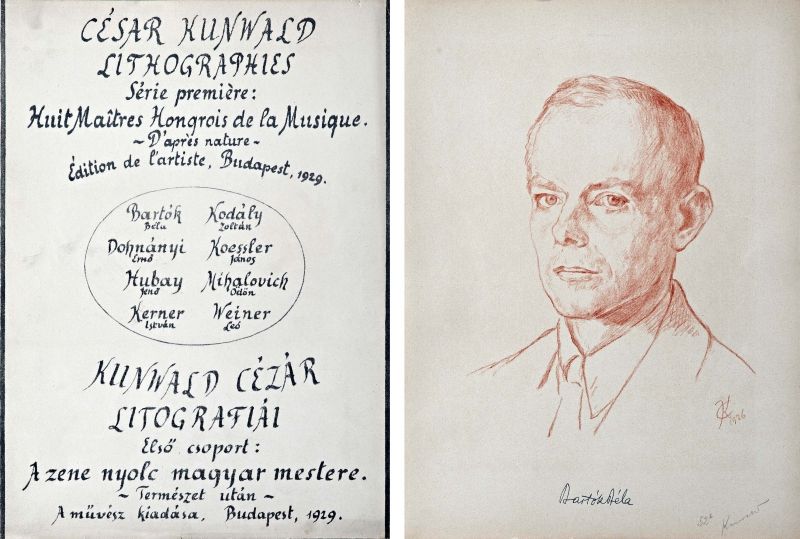 CÉSAR KUNWALD
LITHOGRAPHIES
Série première:
Huit Maîtres Hongrois de la Musique.
~ D'après nature ~
Édition de l'artiste, Budapest, 1929.
Bartók Kodály
Béla Zoltán
Dohnányi Koessler
Ernő János
Hubay Mihalovich
Jenő Ödön
Kerner Weiner
István Leó
KUNWALD CÉZÁR
LITOGRAFIÁI
Első csoport:
A zene nyolc magyar mestere.
~ Természet után ~
A művész kiadása, Budapest, 1929.
1926
Bartók Béla